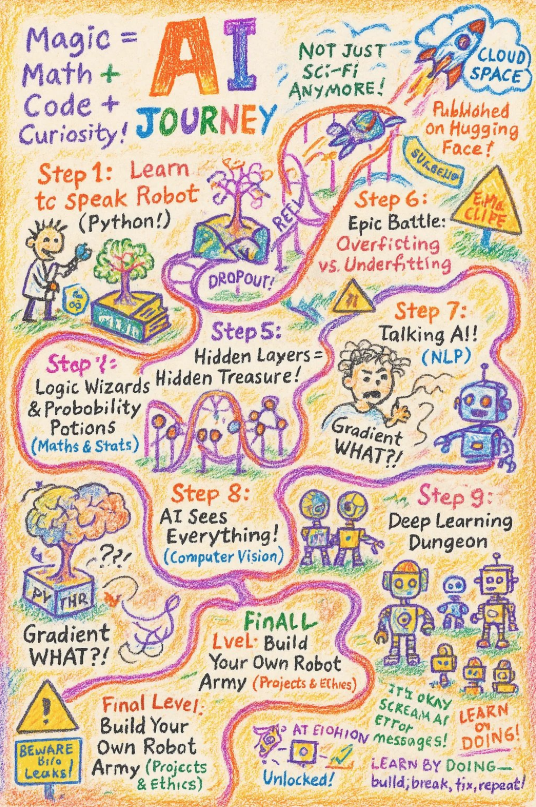 Magic =
Math +
Code +
Curiosity!
AI
JOURNEY
NOT JUST
SCi-Fi
ANYMORE!
CLOUD
SPACE
Published
on Hugging
Face!
Step 1: Learn
to speak Robot
(Python!)
REEL
DROPOUT!
Step 6:
Epic Battle:
Overficting
vs. Underfitting
n
Step 7:
Talking AI!!
(NLP)
Gradient
WHAT?!
Step 5:
Hidden Layers =
Hidden Treasure!
Logic Wizards
& Probability
Potions
(Maths & Stats)
Step 8:
AI Sees
Everything!
(Computer Vision)
Step 9:
Deep Learning
Dungeon
??!
PY THR
Gradient
WHAT?!
FinALL
LvEL: Build
Your Own Robot
Army (Projects & Ethics)
!
BEWARE
Leaks!
Final Level:
Build Your
Own Robot
Army (Projects
& Ethics)
AT EIOHION
Unlocked!
IT'S OKAY
SCREAM AI
ERROR
messages!
LEARN
ON
DOING!
LEARN BY DOING—
build, break, fix, repeat!